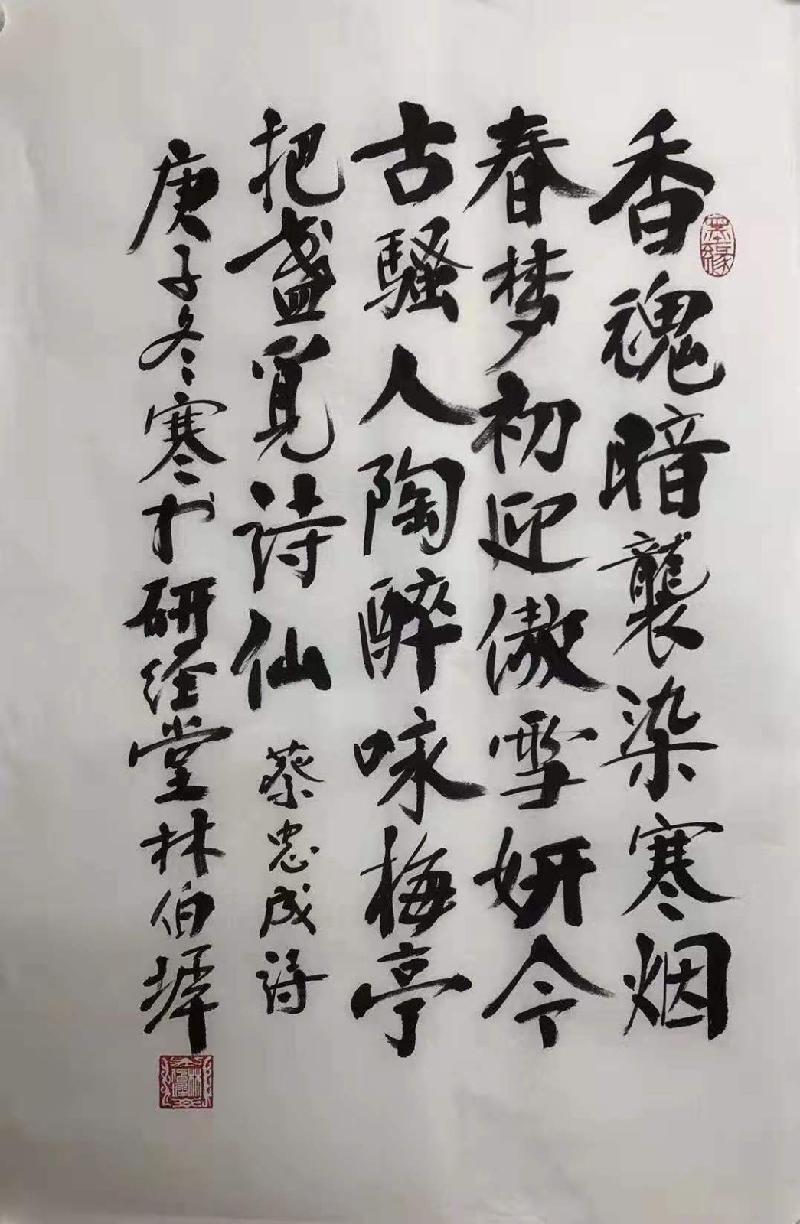 香魂暗襲染寒烟
春梦初迎傲雪妍今
古騷人陶醉咏梅亭
把盏覓詩仙 蔡忠成詩
庚子冬寒于研经堂林伯